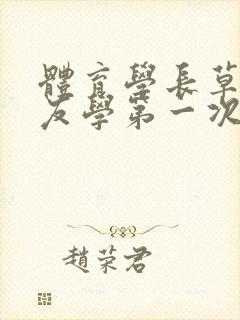 體育學長草
友學第一次
趙荣君